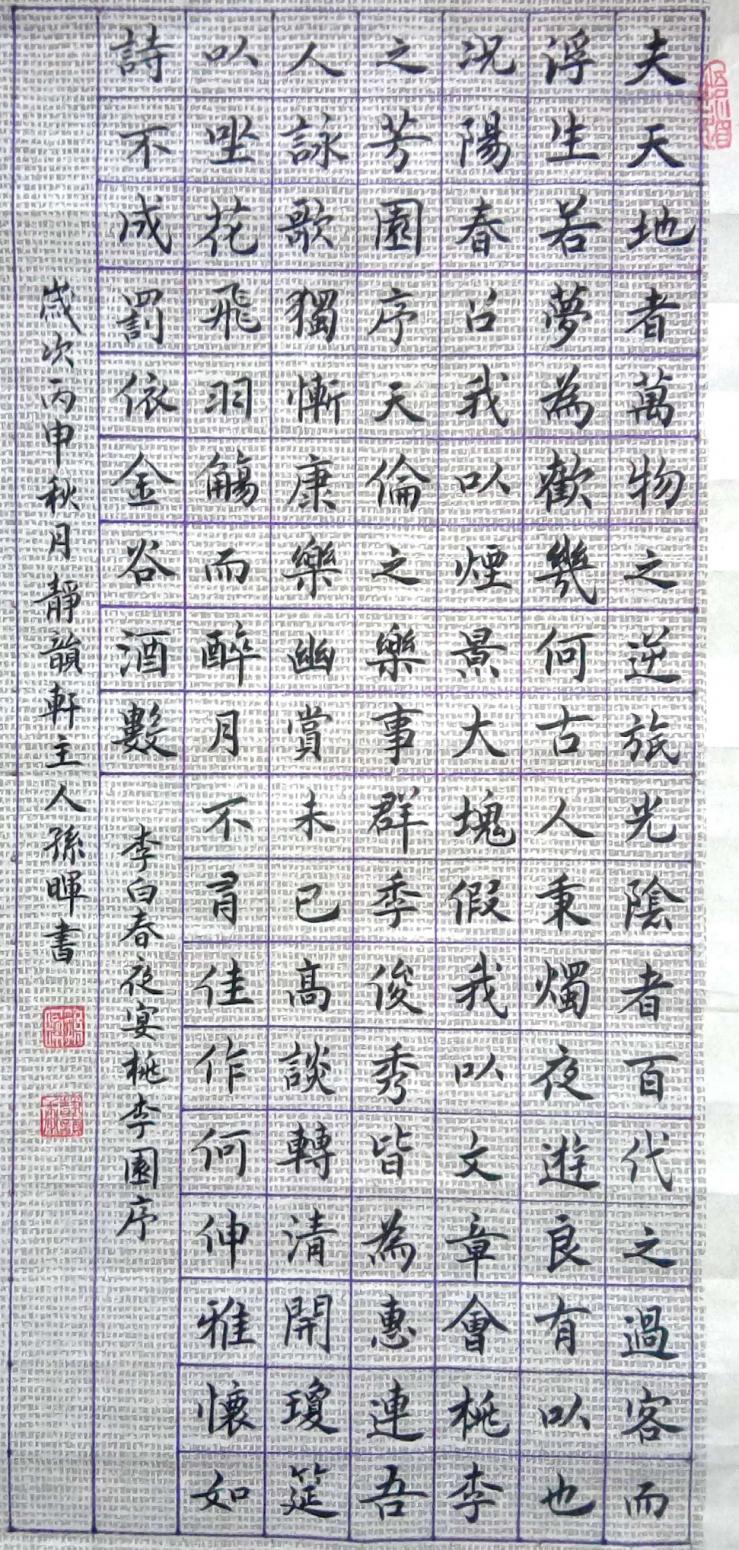 夫天地者萬物之逆旅光陰者百代之過客而
浮生若夢為歡幾何古人秉燭夜遊良有以也
况陽春召我以煙景大塊假我以文章會桃李
之芳園序天倫之樂事群季俊秀皆為惠連吾
人詠歌獨慚康樂幽賞未已高談轉清開瓊筵
以坐花飛羽觴而醉月不有佳作何伸雅懷如
詩不成罰依金谷酒數
李白春夜宴桃李園序
歲次丙申秋月靜韻軒主人孫暉書